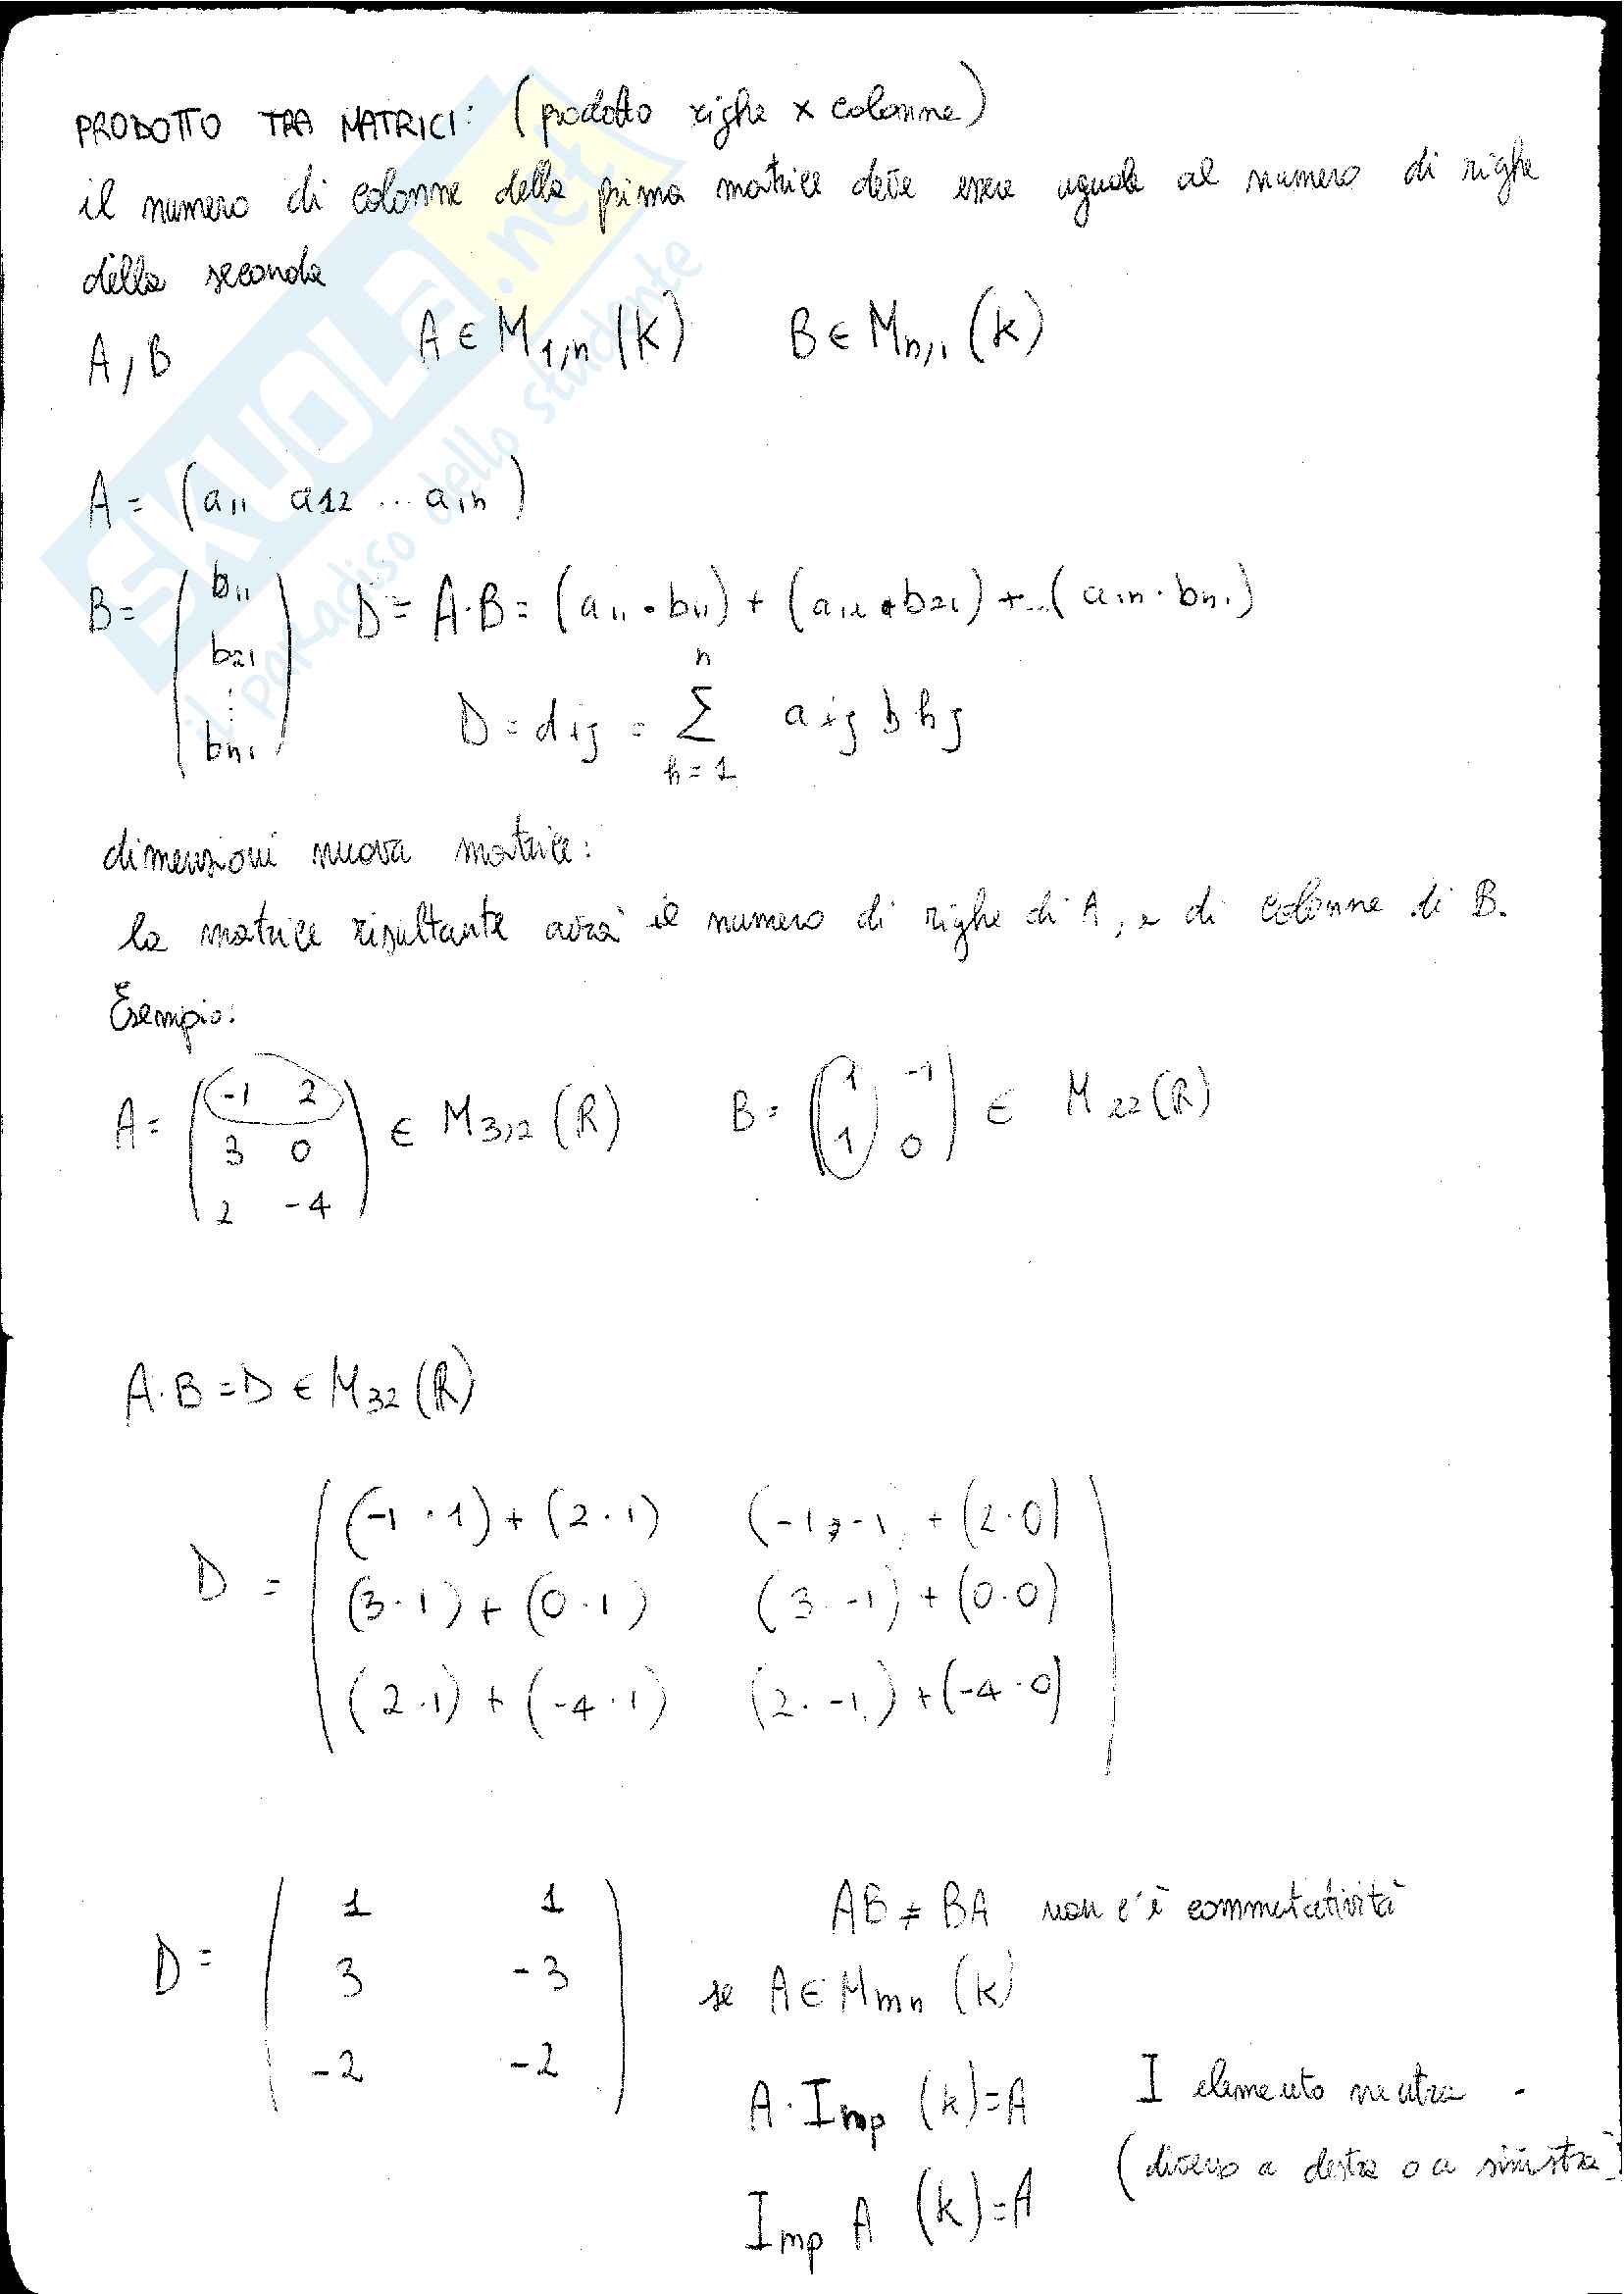 PRODOTTO TRA MATRICI: (prodotto righe x colonne)
il numero di colonne della prima matrice deve essere uguale al numero di righe
della seconda
A, B A ∈ M1,n (K) B ∈ Mn,1 (K)
A = (a11 a12 ... a1n)
B = (b11 b21 ⋮ bn1) D = A·B = (a11 · b11) + (a12 · b21) + ...(a1n · bn1)
D = dij = n Σ h=1 aij bhj
dimensioni nuova matrice:
la matrice risultante avrà il numero di righe di A, e di colonne di B.
Esempio:
A = (-1 2
3 0
2 -4) ∈ M3,2 (R) B = (1 -1
1 0) ∈ M22 (R)
A·B = D ∈ M32 (R)
D = ((-1 · 1) + (2 · 1) (-1 · -1) + (2 · 0)
(3 · 1) + (0 · 1) (3 · -1) + (0 · 0)
(2 · 1) + (-4 · 1) (2 · -1) + (-4 · 0))
D = (1 1
3 -3
-2 -2)
AB ≠ BA non c'è commutatività
se A ∈ Mmn (K)
A · Imp (K) = A I elemento neutro
(diverso a destra o a sinistra)
Imp A (K) = A
SKUOLA.net
il paradiso dello studente